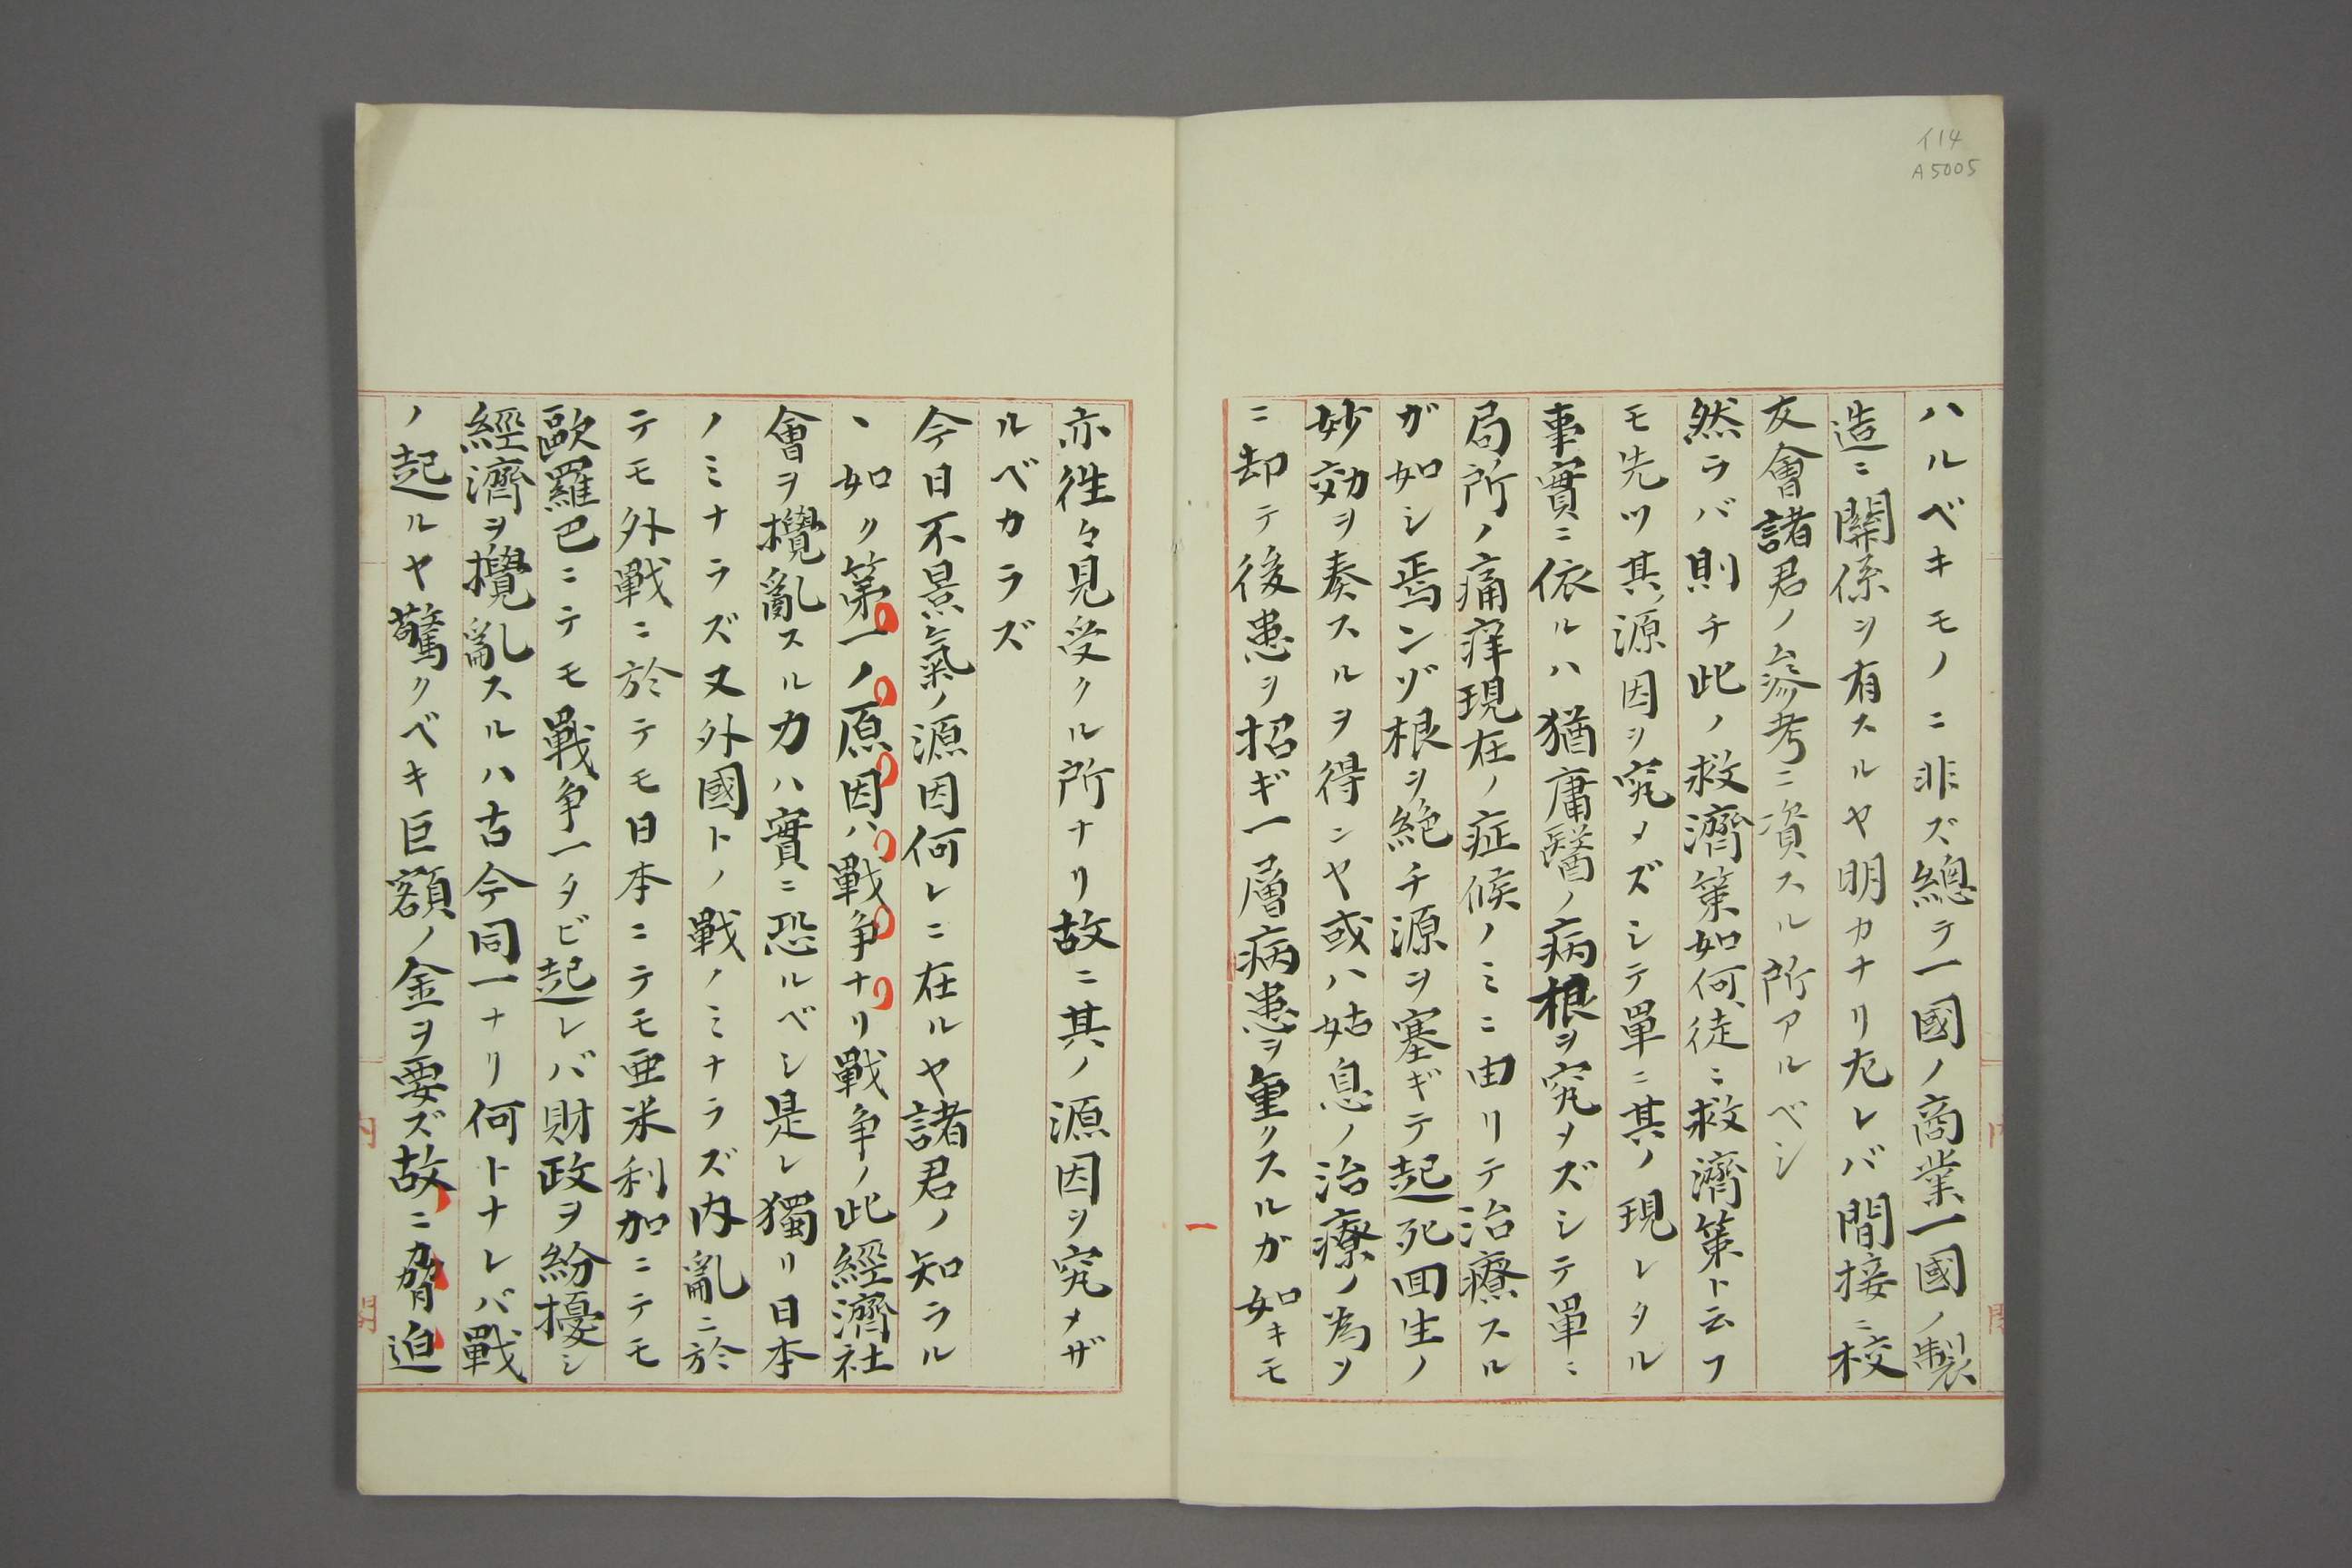 イ14
A5005
ハルベキモノニ非ズ總テ一國ノ商業一國ノ製
造ニ關係ヲ有スルヤ明カナリ尤レバ間接ニ校
友會諸君ノ參考ニ資スル所アルベシ
然ラバ則チ此ノ救濟策如何徒ニ救濟策ト云フ
モ先ツ其ノ源因ヲ究メズシテ單ニ其ノ現レタル
事實ニ依ルハ猶庸醫ノ病根ヲ究メズシテ單ニ
局所ノ痛痒現在ノ症候ノミニ由リテ治療スル
ガ如シ焉ンゾ根ヲ絶チ源ヲ塞ギテ起死回生ノ
妙効ヲ奏スルヲ得ンヤ或ハ姑息ノ治療ノ為ヲ
ニ却テ後患ヲ招ギ一層病患ヲ重クスルガ如キモ
一
亦徃々見受クル所ナリ故ニ其ノ源因ヲ究メザ
ルベカラズ
今日不景氣ノ源因何レニ在ルヤ諸君ノ知ラル
ヽ如ク第一ノ原因ハ戰争ナリ戰争ノ此經濟社
會ヲ攪亂スル力ハ實ニ恐ルベシ是レ獨リ日本
ノミナラズ又外國トノ戰ノミナラズ内亂ニ於
テモ外戰ニ於テモ日本ニテモ亜米利加ニテモ
歐羅巴ニテモ戰争一タビ起レバ財政ヲ紛擾シ
經濟ヲ攪亂スルハ古今同一ナリ何トナレバ戰
ノ起ルヤ驚クベキ巨額ノ金ヲ要ズ故ニ脅迫
内閣